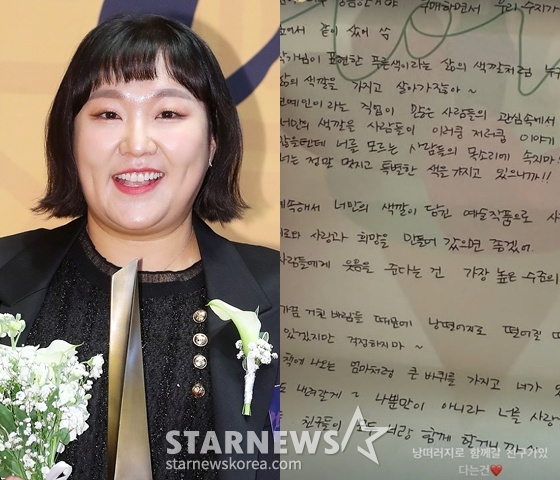 구매하면서 우리 수지가
같이 샀어 씀
작가님이 표현한 푸른색이라는 삶의 색깔처럼 누구
삶의 색깔을 가지고 살아가잖아~
연예인이라는 직업이 많은 사람들의 관심속에서
너만의 색깔을 사람들이 이러쿵 저러쿵 이야기
너를 모르는 사람들의 목소리에 속지마
너는 정말 멋지고 특별한 색을 가지고 있으니까!!
계속해서 너만의 색깔이 담긴 예술작품으로 사
사랑과 희망을 만들어 갔으면 좋겠어
사람들에게 웃음을 준다는건 가장 높은 수준의
가끔 거친 바람들 때문에 낭떠러지로 떨어질
있겠지만 걱정하지마~
책에 나오는 엄마처럼 큰 바퀴를 가지고 너가
나뿐만이 아니라 너를 사랑
친구들이 모두 너랑 함께 할거니까
낭떠러지로 함께갈 친구가있
다는건❤️
STARNEWS
starnewskorea.com